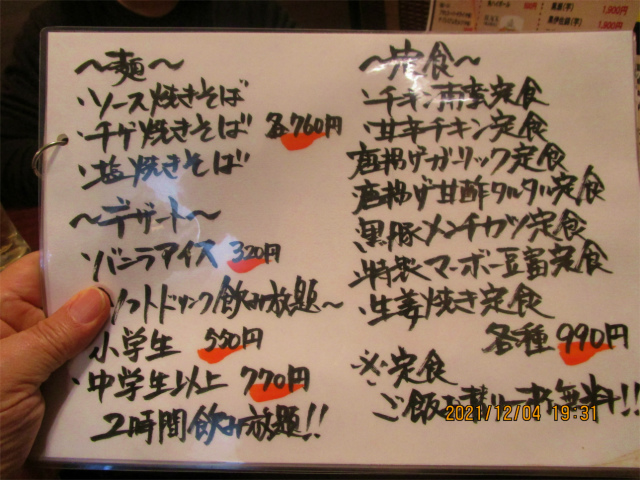 〜麺〜
・ソース焼きそば
・チゲ焼きそば 各760円
・塩焼きそば
〜デザート〜
・バニラアイス 320円
ソフトドリンク飲み放題〜
小学生 550円
・中学生以上 770円
2時間飲み放題!!
〜定食〜
・チキン南蛮定食
・甘辛チキン定食
唐揚げガーリック定食
唐揚げ甘酢タルタル定食
・黒豚メンチカツ定食
・特製マーボー豆富定食
・生姜焼き定食
各種 990円
※定食
ご飯 無料!!
2021/12/04 19:31